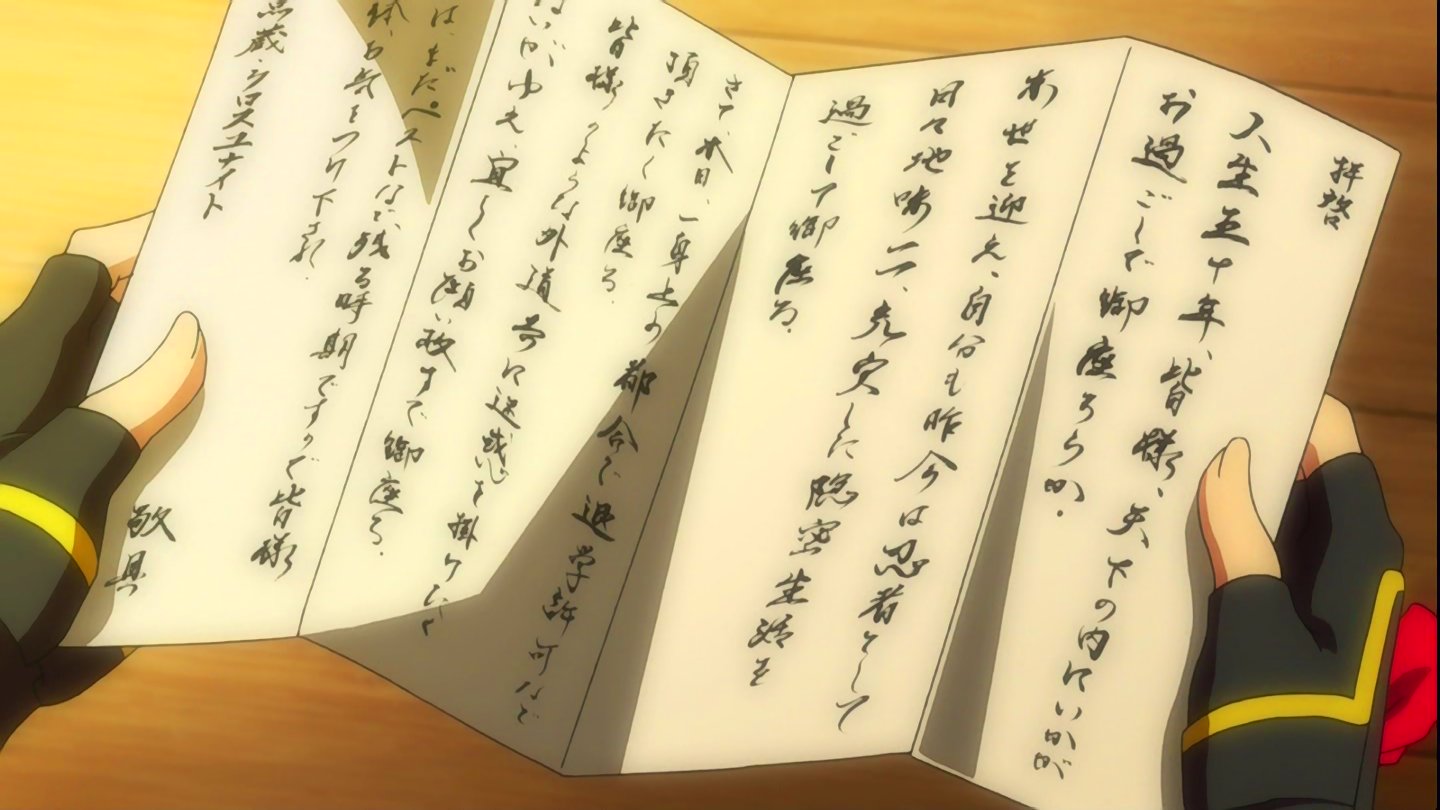 拝啓
人生五十年、皆様、天下の内にいかが
お過ごしで御座ろうか。
末世を迎え、自分も昨今は忍者として
日々地味に、充実した隠密生活を
過ごして御座る。
さて、本日、一身上の都合で退学許可など
頂きたく御座る。
皆様のような外道共に迷惑を掛けたく
ないがゆえ、宜しくお願い致すで御座る。
は、まだペストなど残る時期ですので皆様
お気をつけ下され。
点蔵・クロスユナイト
敬具